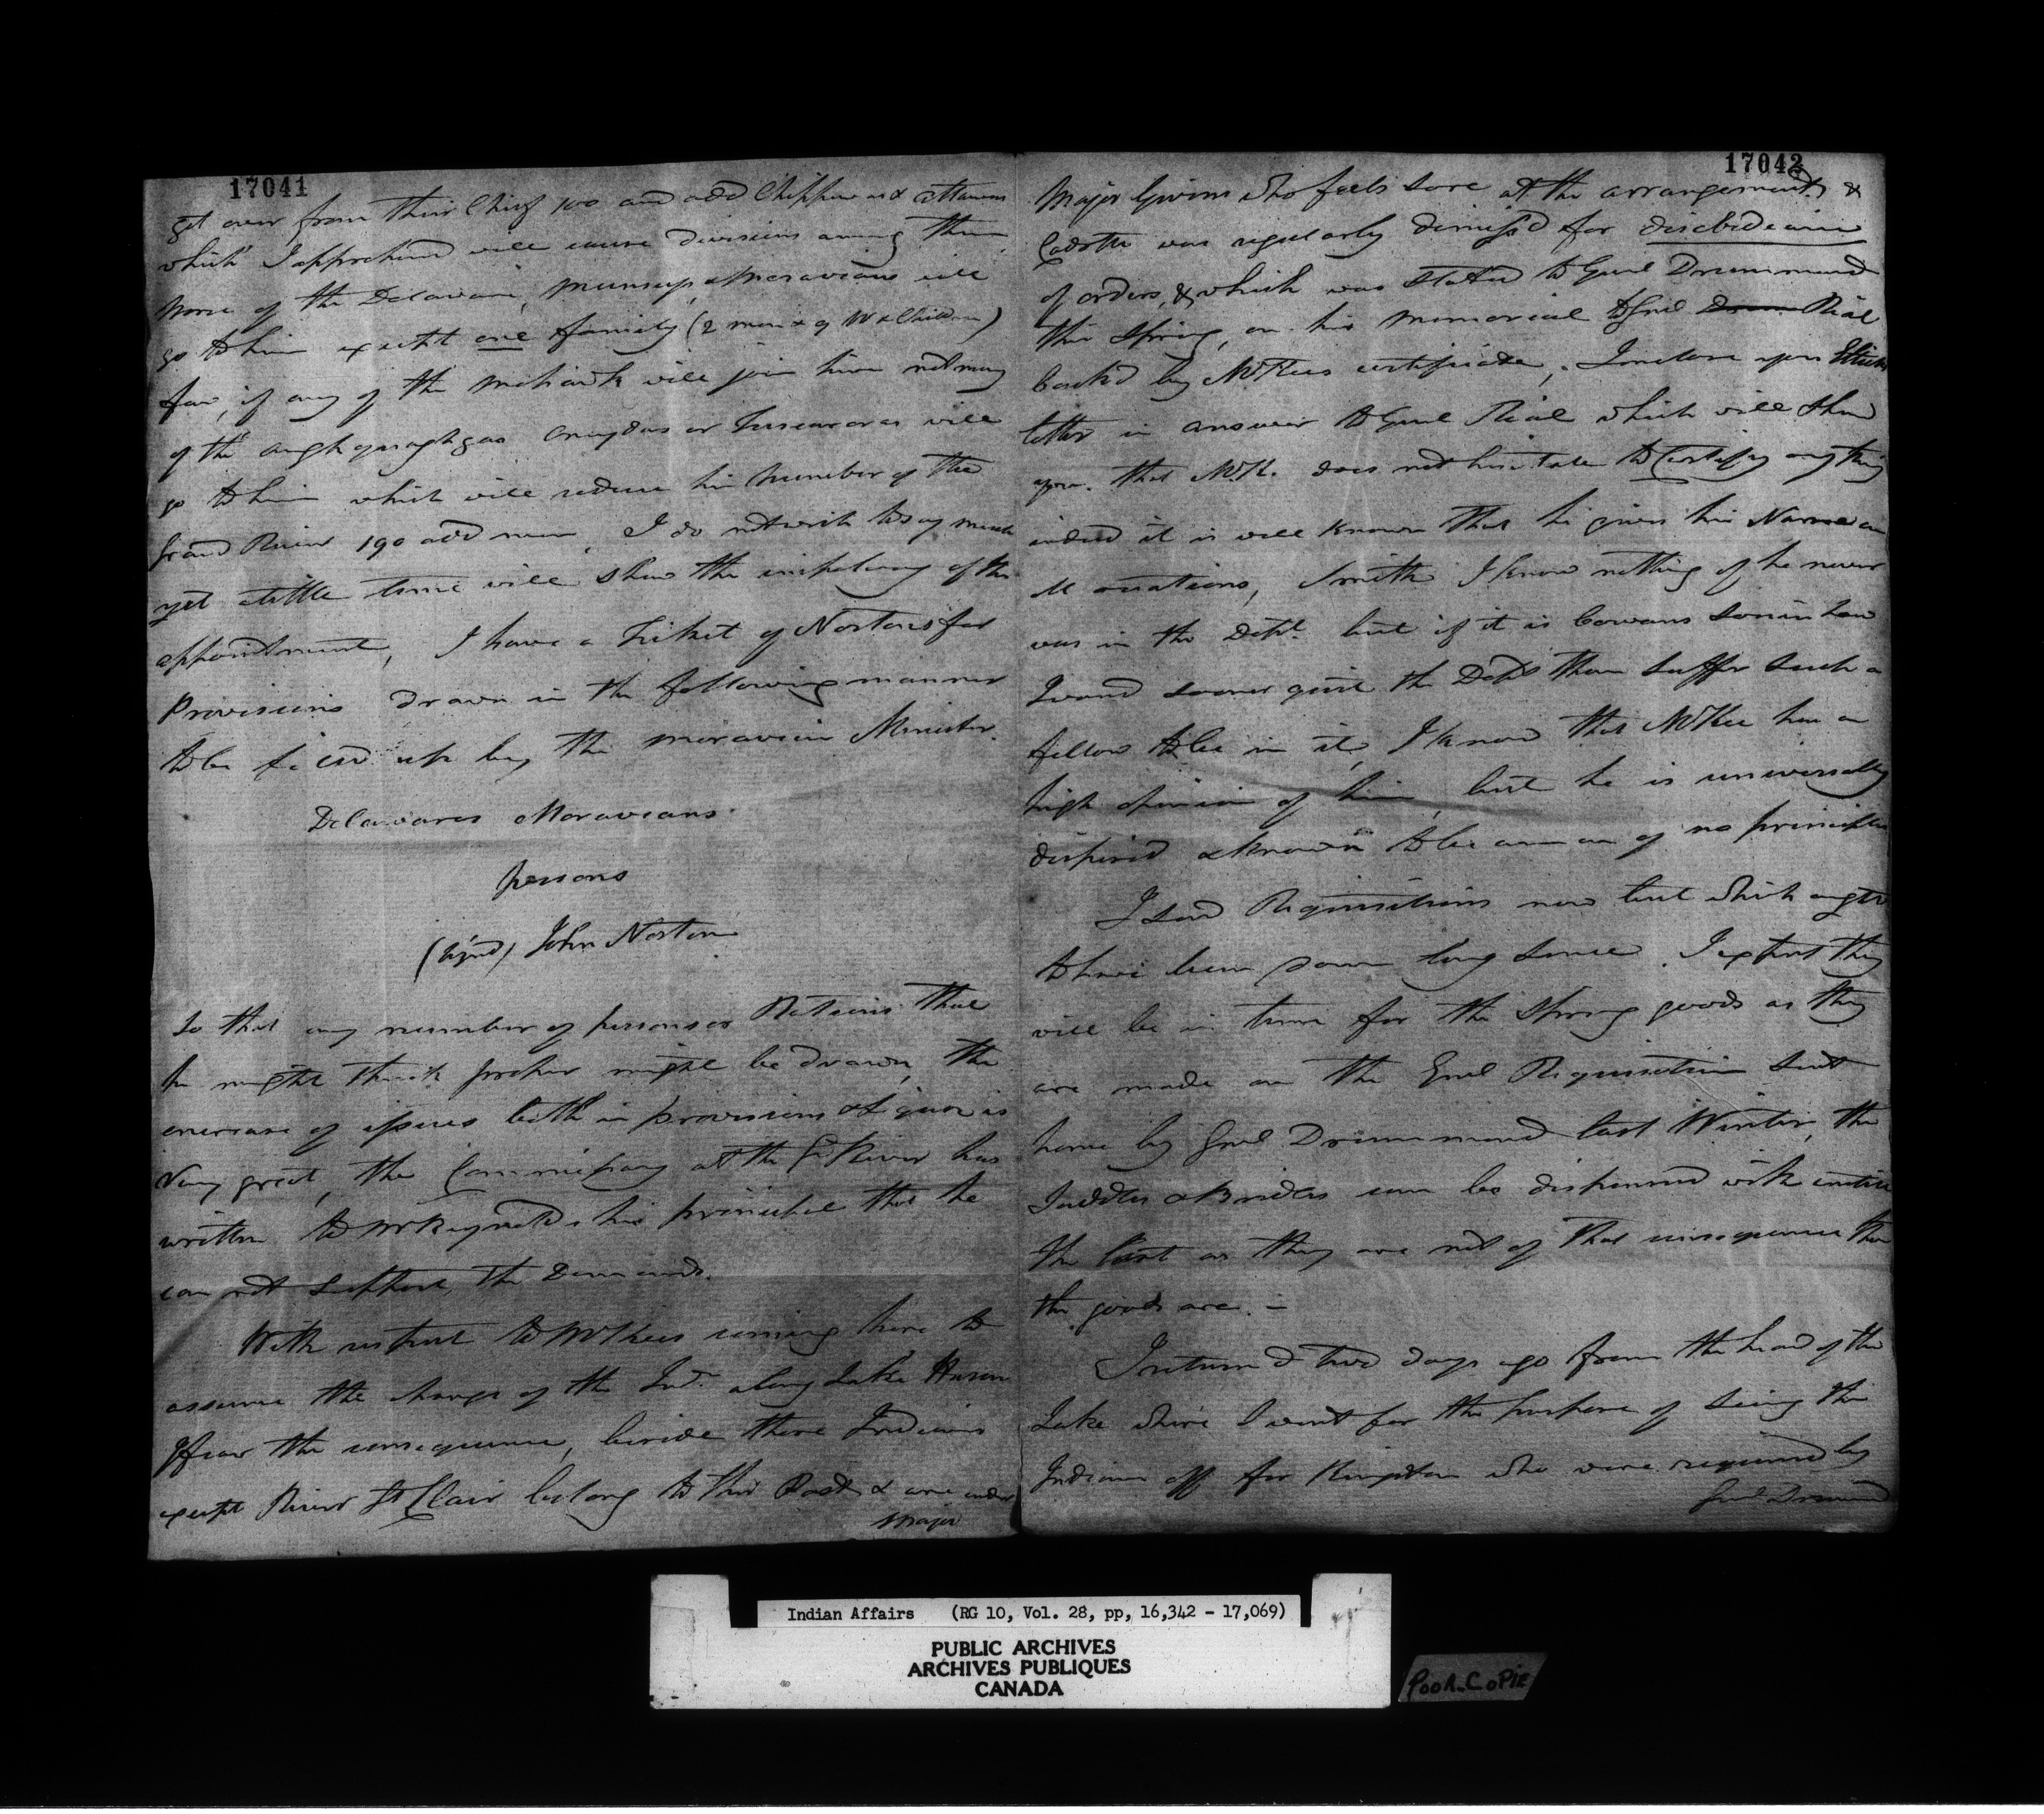 17041
get over from their Chief 100 and odd Chippewas & Ottawas
which I apprehend will cause divisions among them
None of the Delawares, Munseys, & Moravians will
go to him except one family (2 men & 9 W & Children)
few, if any of the Mohawk will join him not many
of the aughquaghgas Onoydas or Tuscaroras will
go to him which will reduce his number of the
Grand River 190 odd men, I do not wish to say much
yet a little time will shew the impolicy of the
appointment, I have a Ticket of Nortons for
Provisions drawn in the following manner
to be filled up by the Moravian Minister.
Delawares Moravians
persons
(signed) John Norton
So that any number of persons or Rations that
he might think proper might be drawn, the
increase of issues both in provisions & Liquor is
Very great, the Commissary at the Gd River has
written to Mr Reynolds his principal that he
can not support the Demands.
With respect to McKees coming here to
assume the charge of the Inds along Lake Huron
I fear the consequence, beside these Indians
except River St Clair belong to this Post & are under
Major
17042
Major Givins who feels sore at the arrangements &
Cadotte was regularly dismiss'd for disobedience
of orders, & which was stated to Genl Drummond
this Spring, on his memorial to Genl Drum Rial
back'd by McKees certificate, I inclose you Elliotts
letter in answer to Genl Rial which will shew
you that McK. does not hisitate to Certify any thing
indeed it is well known that he gives his Name on
all occations, Smith I know nothing of he never
was in the Dept. but if it is Cowans Son in Law
I would sooner quit the Dept than suffer such a
fellow to be in it, I know that McKee has a
high opinion of him, but he is universally
dispised & known to be a man of no principle
I send Requisitions now but which ought
to have been down long since. I expect they
will be in time for the Spring goods as they
are made on the Genl Requisition sent
home by Genl Drummond last Winter, the
Saddles & Bridles can be dispensed with untill
the last as they are not of that consequence than
the goods are. –
I return'd two days ago from the head of the
Lake where I went for the purpose of seeing the
Indians off for Kingston who were required by
Genl Drummond
Indian Affairs (RG 10, Vol. 28, pp, 16,342 - 17,069)
PUBLIC ARCHIVES
ARCHIVES PUBLIQUES
CANADA
POOR COPIE